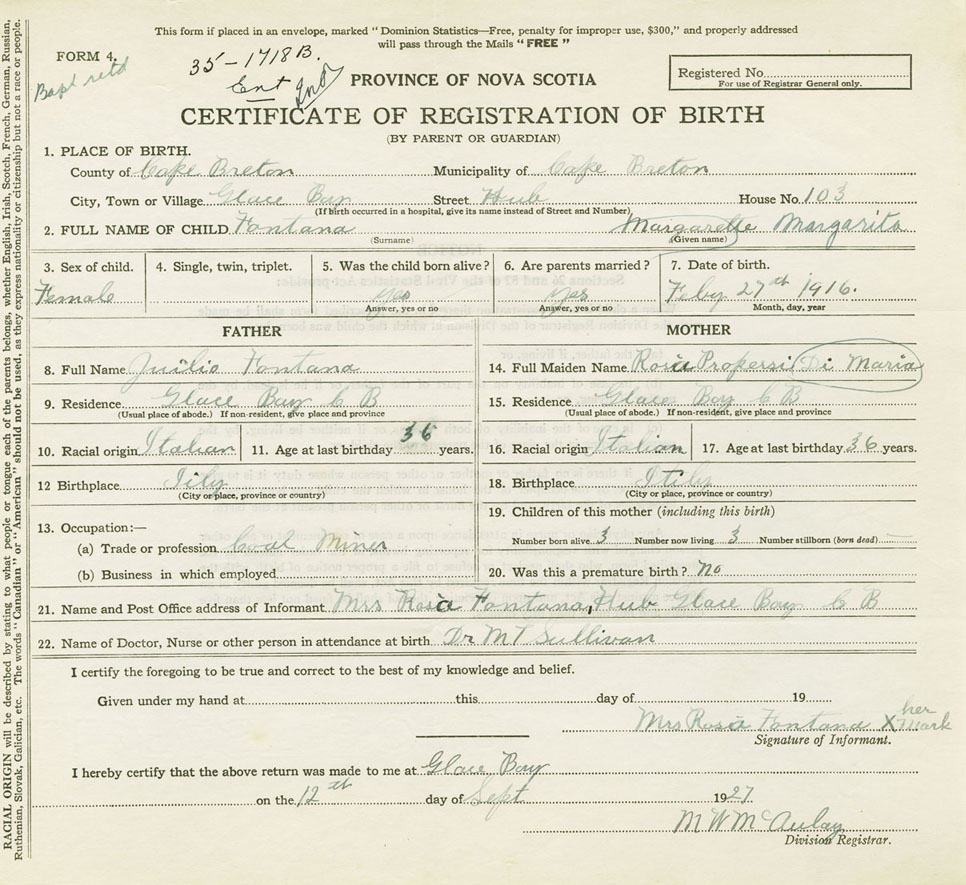 This form if placed in an envelope, marked "Dominion Statistics—Free, penalty for improper use, $300," and properly addressed
will pass through the Mails "FREE"
FORM 4.
Bapt retd
35-1718B.
Ent
PROVINCE OF NOVA SCOTIA
Registered No.
For use of Registrar General only.
CERTIFICATE OF REGISTRATION OF BIRTH
(BY PARENT OR GUARDIAN)
1. PLACE OF BIRTH.
County of Cape Breton Municipality of Cape Breton
City, Town or Village Glace Bay Street Hub House No. 103
(If birth occurred in a hospital, give its name instead of Street and Number)
2. FULL NAME OF CHILD Fontana Margarette Margarita
(Surname) (Given name)
3. Sex of child. 4. Single, twin, triplet. 5. Was the child born alive? 6. Are parents married? 7. Date of birth.
Female Yes Yes Feby 27th 1916.
Answer, yes or no Answer, yes or no Month, day, year
FATHER MOTHER
8. Full Name Juilio Fontana 14. Full Maiden Name Rosia Propersi Di Maria
9. Residence Glace Bay C B 15. Residence Glace Bay C B
(Usual place of abode.) If non-resident, give place and province (Usual place of abode.) If non-resident, give place and province
10. Racial origin Italian 11. Age at last birthday 36 years. 16. Racial origin Italian 17. Age at last birthday 36 years.
12 Birthplace Itily 18. Birthplace Itily
(City or place, province or country) (City or place, province or country)
13. Occupation:— 19. Children of this mother (including this birth)
(a) Trade or profession Coal Miner Number born alive 3 Number now living 3 Number stillborn (born dead) —
(b) Business in which employed 20. Was this a premature birth? no
21. Name and Post Office address of Informant Mrs Rosia Fontana, Hub Glace Bay C B
22. Name of Doctor, Nurse or other person in attendance at birth Dr MT Sullivan
I certify the foregoing to be true and correct to the best of my knowledge and belief.
Given under my hand at this day of 19
Mrs Rosia Fontana X her Mark
Signature of Informant.
I hereby certify that the above return was made to me at Glace Bay
on the 12th day of Sept 1927
M W McAulay
Division Registrar.
RACIAL ORIGIN will be described by stating to what people or tongue each of the parents belongs, whether English, Irish, Scotch, French, German, Russian,
Ruthenian, Slovak, Galician, etc. The words "Canadian" or "American" should not be used, as they express nationality or citizenship but not a race or people.